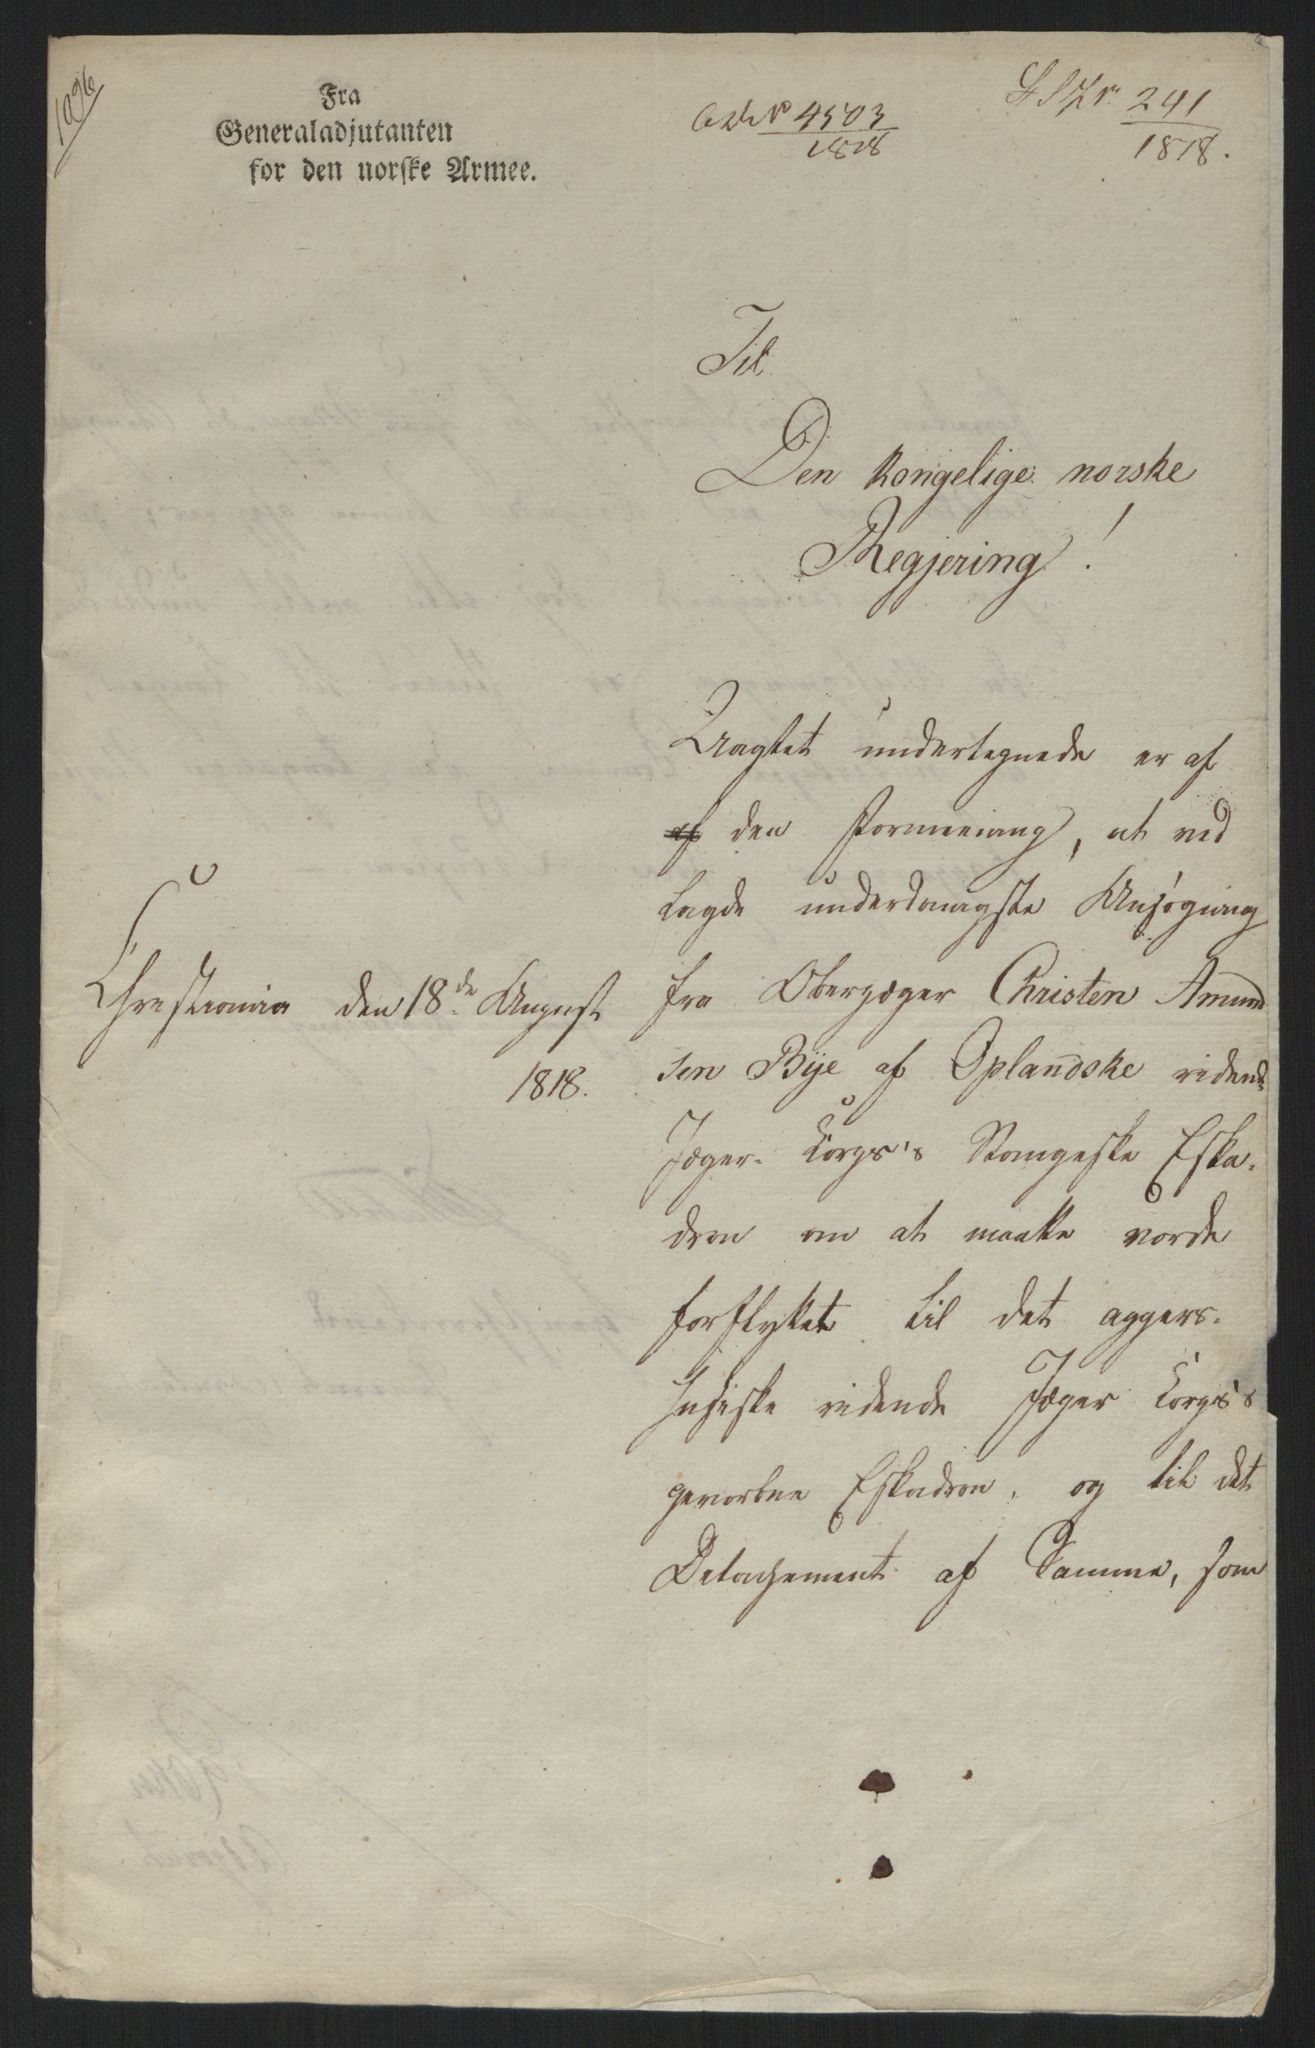 1096
Fra
Generaladjutanten
for den norske Armee.
No 4503
1818
241
1818.
Til
Den Kongelige norske
Regjering!
Uagtet undertegnede er af
af den Formeening, at ved
lagde underdanigste Ansøgning
fra Oberjæger Christen Amund
sen Bye af Oplandske ridende
Jæger-Korps's Stangeske Eska-
dron om at maatte vorde
forflyttet til det aggers-
husiske ridende Jæger Korps's
gevorbne Eskadron, og til det
Detachement af Samme, som
Christiania den 18de August
1818.